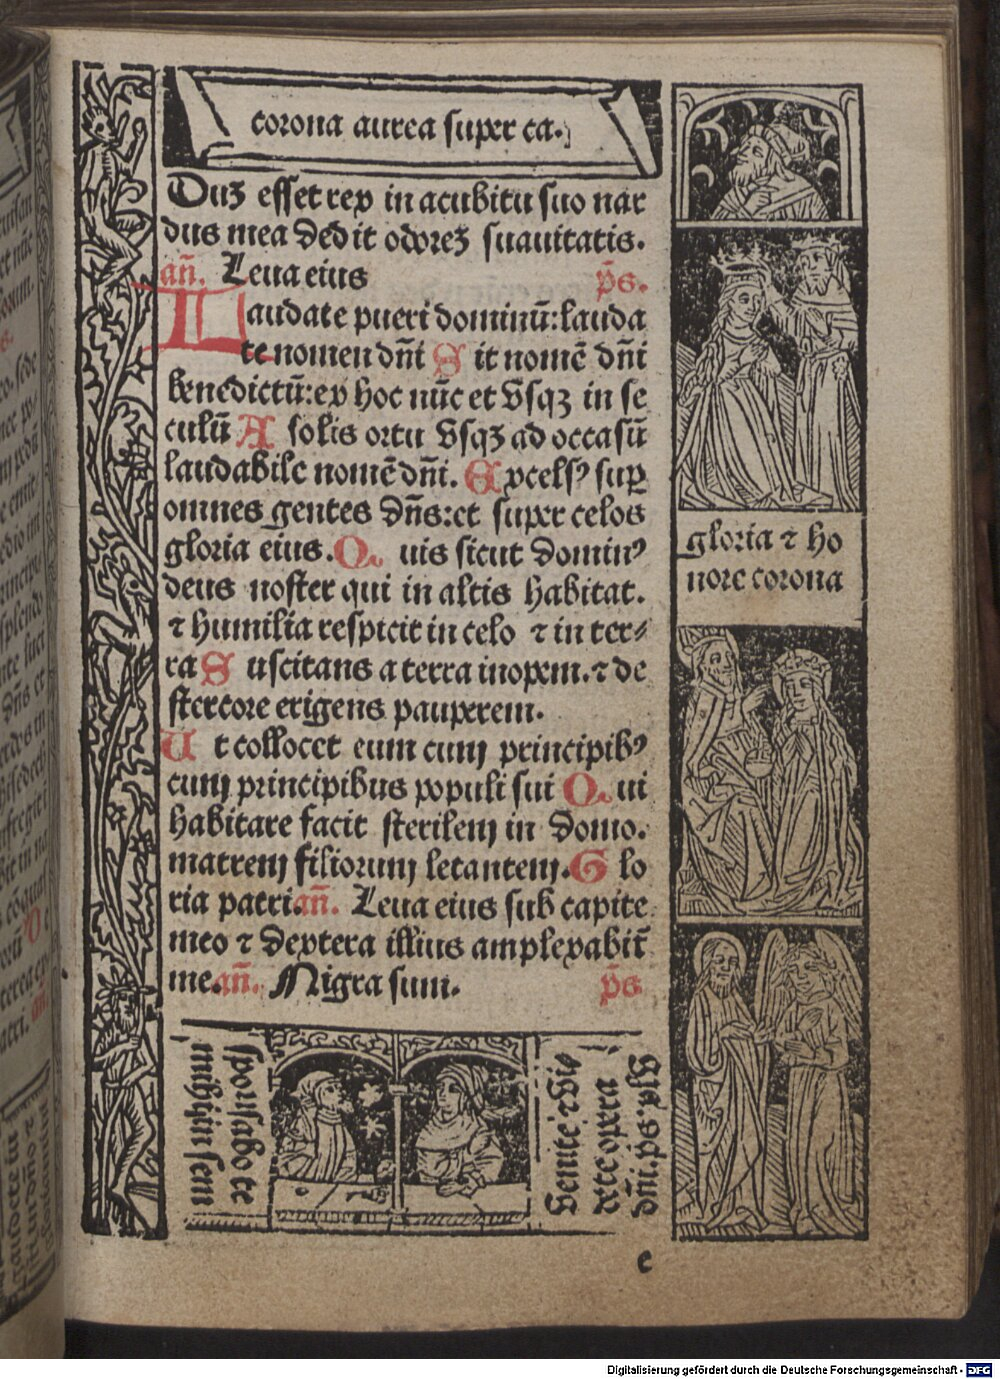 corona aurea super ca.
Duʒ esset rex in acubitu suo nar
dus mea dedit odoreʒ suauitatis.
añ. Leua eius p̄s.
Laudate pueri dominū: lauda
te nomen dn̄i Sit nomē dn̄i
benedictū: ex hoc nūc et vsqʒ in se
culū A solis ortu vsqʒ ad occasū
laudabile nomē dn̄i. Excelsꝰ suꝑ
omnes gentes dn̄s: et super celos
gloria eius. Quis sicut dominꝰ
deus noster qui in altis habitat.
⁊ humilia respicit in celo ⁊ in ter⸗
ra Suscitans a terra inopem. ⁊ de
stercore erigens pauperem.
Ut collocet eum cum principibꝰ
cum principibus populi sui Qui
habitare facit sterilem in domo.
matrem filiorum letantem. Glo
ria patri. añ. Leua eius sub capite
meo ⁊ dextera illius amplexabit̄
me. añ. Nigra sum. p̄s
gloria ⁊ ho
nore corona
sponsabo te
mihi in sem
Venite ⁊ vi
dete opera
dn̄i. ps.
c
Digitalisierung gefördert durch die Deutsche Forschungsgemeinschaft - DFG